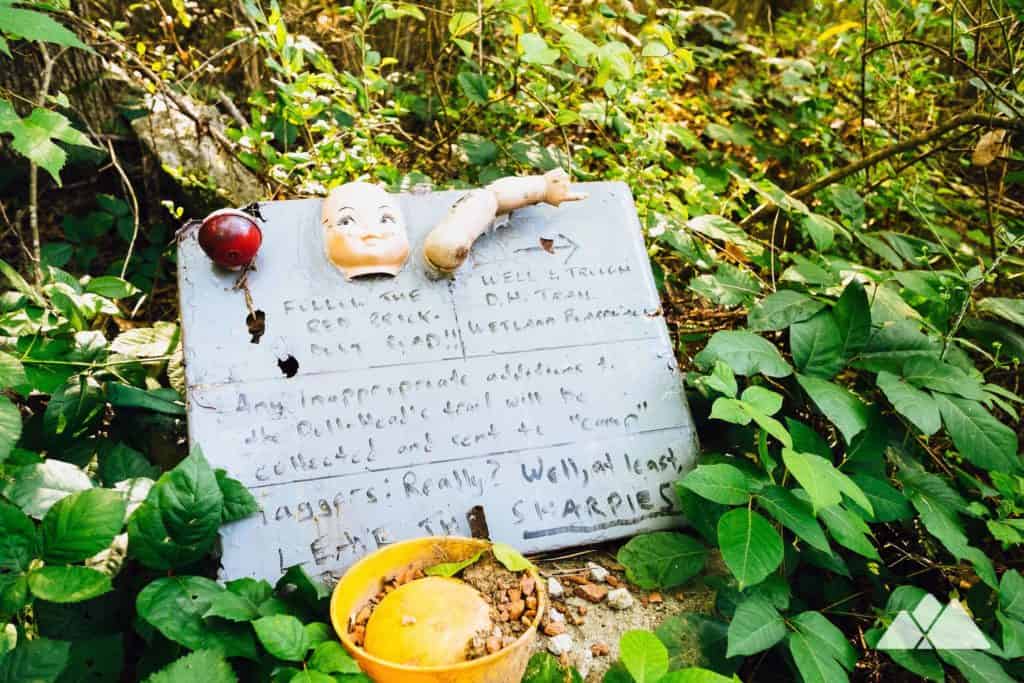 FOLLOW THE
RED BRICK.
DUST ROAD!!
WELL & TROUGH
D.H. TRAIL
WETLAND
Any inappropriate additions to
the Doll-Head's trail will be
collected and sent to "camp"
Taggers: Really? Well, at least,
LEAVE THE SHARPIES